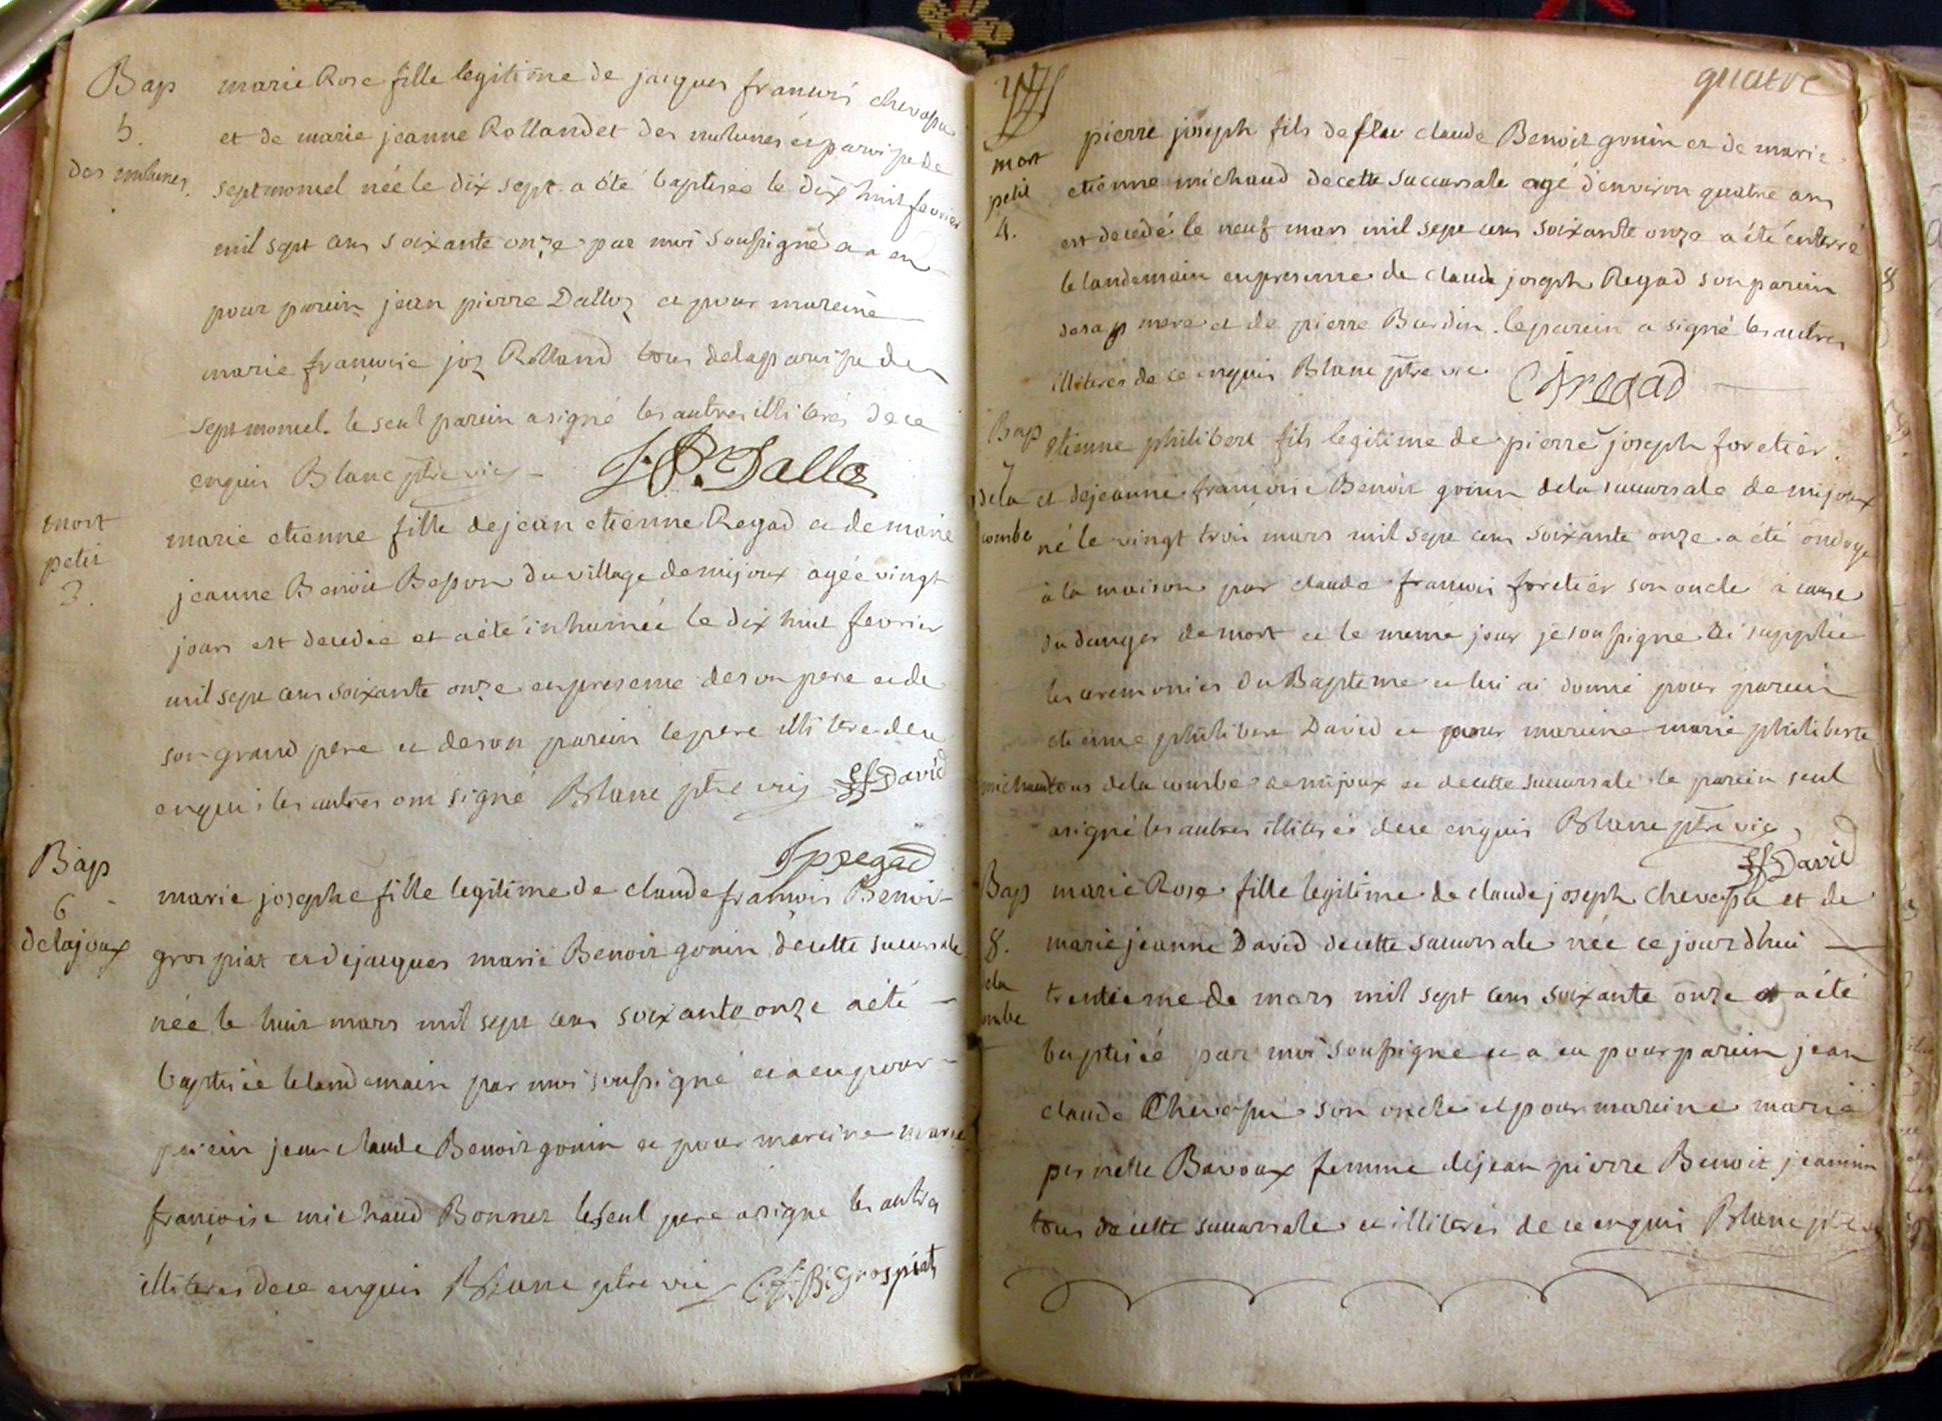 Bap marie Rose fille legitime de jacques francois chevassu
5. et de marie jeanne Rolland et des mulunes es paroisse de
des mulunes. septmoncel née le dix sept a été baptisée le dix huit fevrier
mil sept cens soixante onze par moi soussigné a eu
pour parein jean pierre Dalloz et pour mareine
marie francoise joz Rolland tous de la paroisse de
septmoncel. le seul parein a signé les autres illiterés de ce
enquis Blanc ptre vic J.P. Dalloz
mort marie etienne fille de jean etienne Regad et de marie
petit jeanne Benoit Bapon du village de mijoux agée vingt
3. jours est decedée et a été inhumée le dix huit fevrier
mil sept cens soixante onze en presence de son pere et de
son grand pere et de son parein le pere illiteré de ce
enquis les autres ont signé Blanc ptre vic David
Jpregad
Bap marie josephe fille legitime de claude francois Benoit
6 gros piat et de jacques marie Benoit gonin de cette succursale
de lajoux née le huit mars mil sept cens soixante onze a été
baptisée le lendemain par moi soussigné et a eu pour
parein jean claude Benoit gonin et pour mareine marie
francoise michaud Bonnet le seul pere a signé les autres
illiterés de ce enquis Blanc ptre vic C.f. B. grospiat
quatre
mort pierre joseph fils de feu claude Benoit gonin et de marie
petit etienne michaud de cette succursale agé d'environ quatre ans
4. est decedé le neuf mars mil sept cens soixante onze a été enterré
le landemain en presence de claude joseph Regad son parein
de sa mere et de pierre Burdin. le parein a signé les autres
illiterés de ce enquis Blanc ptre vic CJregad
Bap etienne philibert fils legitime de pierre joseph foretier.
7 de la et de jeanne francoise Benoit gonin de la succursale de mijoux
combe né le vingt trois mars mil sept cens soixante onze a été ondoyé
à la maison par claude francois foretier son oncle à cause
du danger de mort et le meme jour je soussigné ai supplée
les ceremonies du Bapteme et lui ai donné pour parein
etienne philibert David et pour mareine marie philiberte
michaud tous de la combe de mijoux et de cette succursale le parein seul
a signé les autres illiterés de ce enquis Blanc ptre vic
David
Bap marie Rose fille legitime de claude joseph Chevassu et de
8. marie jeanne David de cette succursale née ce jourdhui
de la trentieme de mars mil sept cens soixante onze a été
combe baptisée par moi soussigné et a eu pour parein jean
claude Chevassu son oncle et pour mareine marie
pernette Bavoux femme de jean pierre Benoit jeannin
tous de cette succursale et illiterés de ce enquis Blanc ptre vic